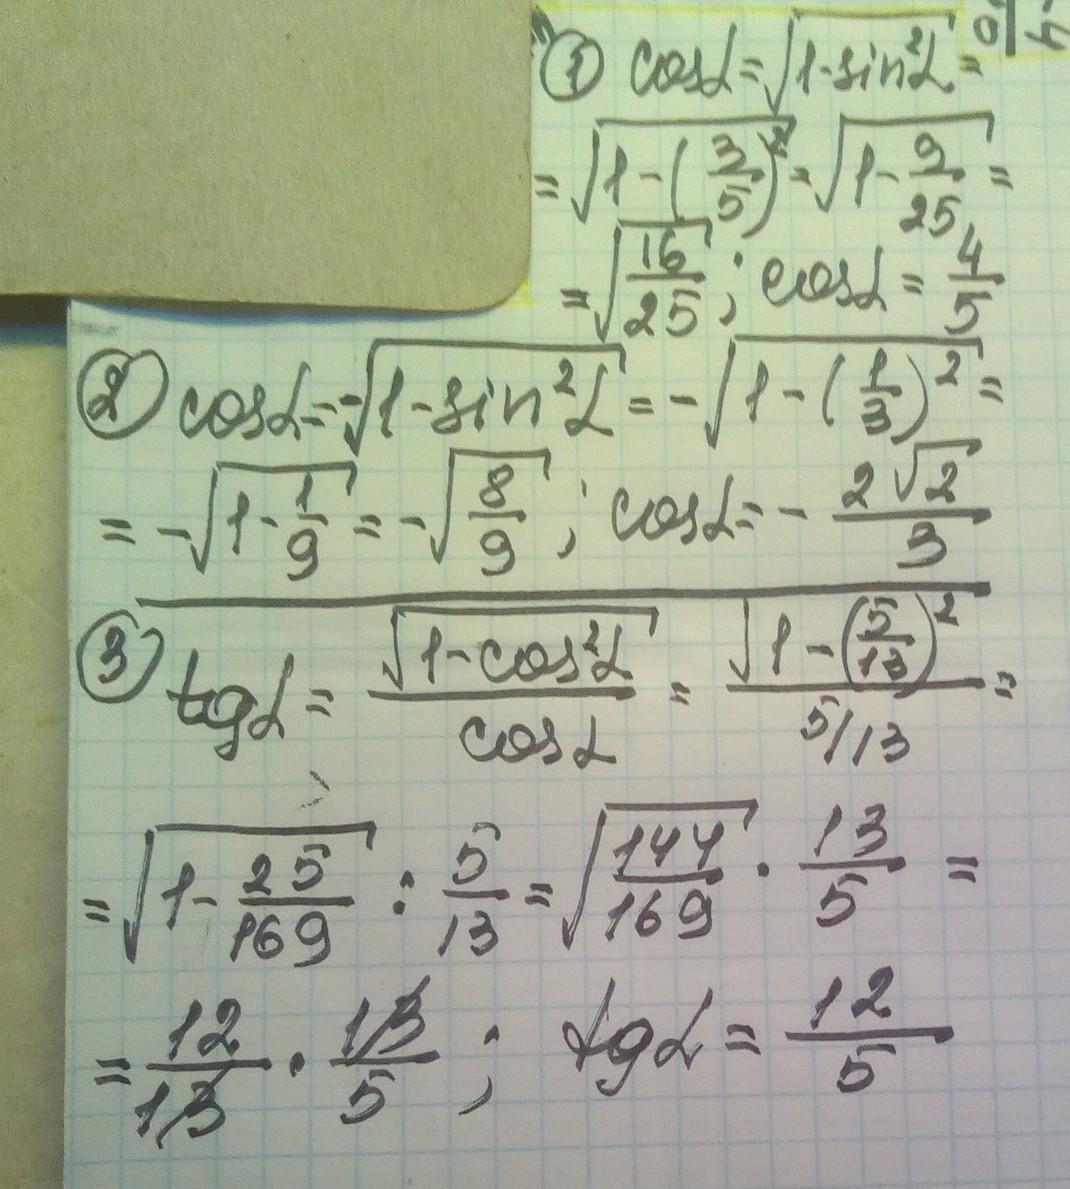 ① cosα = √(1-sin²α) =
= √(1-(3/5)²) = √(1-9/25) =
= √(16/25) ; cosα = 4/5
② cosα = -√(1-sin²α) = -√(1-(1/3)²) =
= -√(1-1/9) = -√(8/9) ; cosα = - 2√2/3
③ tgα = √(1-cos²α)/cosα = √(1-(5/13)²)/(5/13) =
= √(1-25/169) : 5/13 = √(144/169) · 13/5 =
= 12/13 · 13/5 ; tgα = 12/5